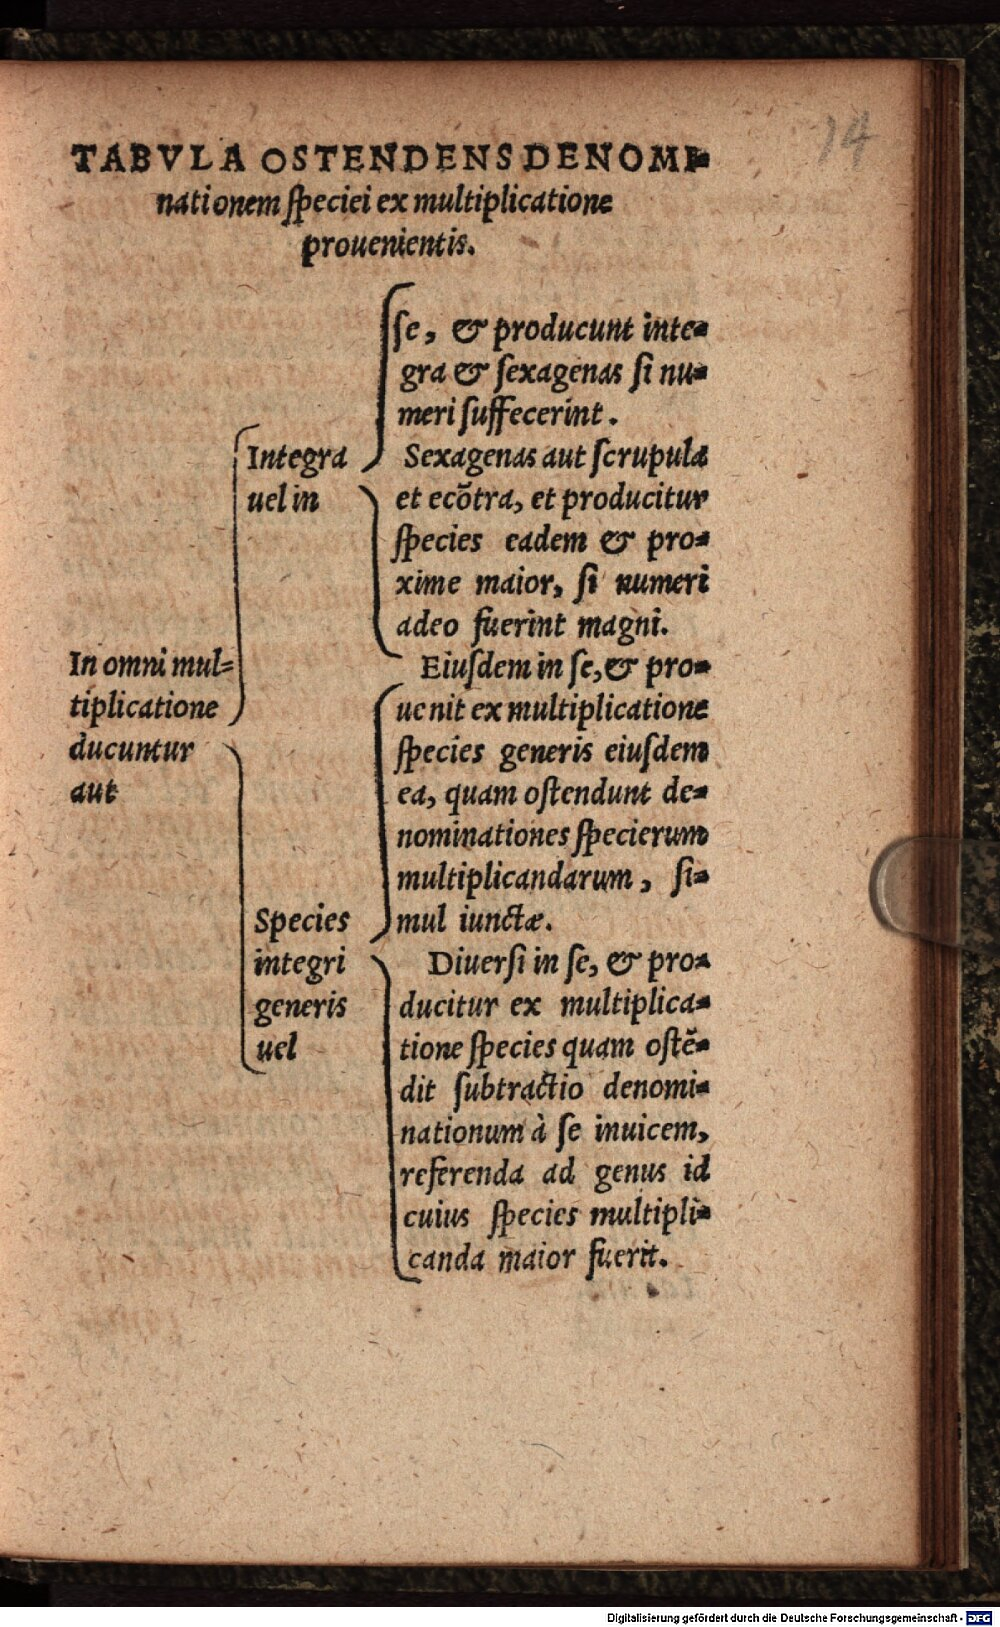 14
TABVLA OSTENDENS DENOMI-
nationem ſpeciei ex multiplicatione
prouenientis.
In omni mul-
tiplicatione
ducuntur
aut
Integra
uel in
ſe, & producunt inte-
gra & ſexagenas ſi nu-
meri ſuffecerint.
Sexagenas aut ſcrupula
et ecõtra, et producitur
ſpecies eadem & pro-
xime maior, ſi numeri
adeo fuerint magni.
Species
integri
generis
uel
Eiuſdem in ſe, & pro-
uenit ex multiplicatione
ſpecies generis eiuſdem
ea, quam oſtendunt de-
nominationes ſpecierum
multiplicandarum, ſi-
mul iunctæ.
Diuerſi in ſe, & pro-
ducitur ex multiplica-
tione ſpecies quam oſtẽ-
dit ſubtractio denomi-
nationum à ſe inuicem,
referenda ad genus id
cuius ſpecies multipli-
canda maior fuerit.
Digitalisierung gefördert durch die Deutsche Forschungsgemeinschaft - DFG